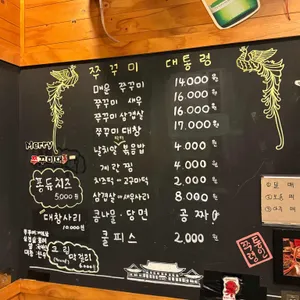 쭈꾸미 대통령
매운 쭈꾸미 14.000원
쭈꾸미 새우 16.000원
쭈꾸미 삼겹살 16.000원
쭈꾸미 대창 17.000원
날치알 볶음밥 4.000원
계란찜 4.000원
치즈떡-고구마떡 2.000원
삼겹살-새우사리 8,000원
콩나물-당면 공짜
쿨피스 2,000원
Merry
퐁듀치즈
5000원
대창사리
10.000원
크림
막걸리
6000원